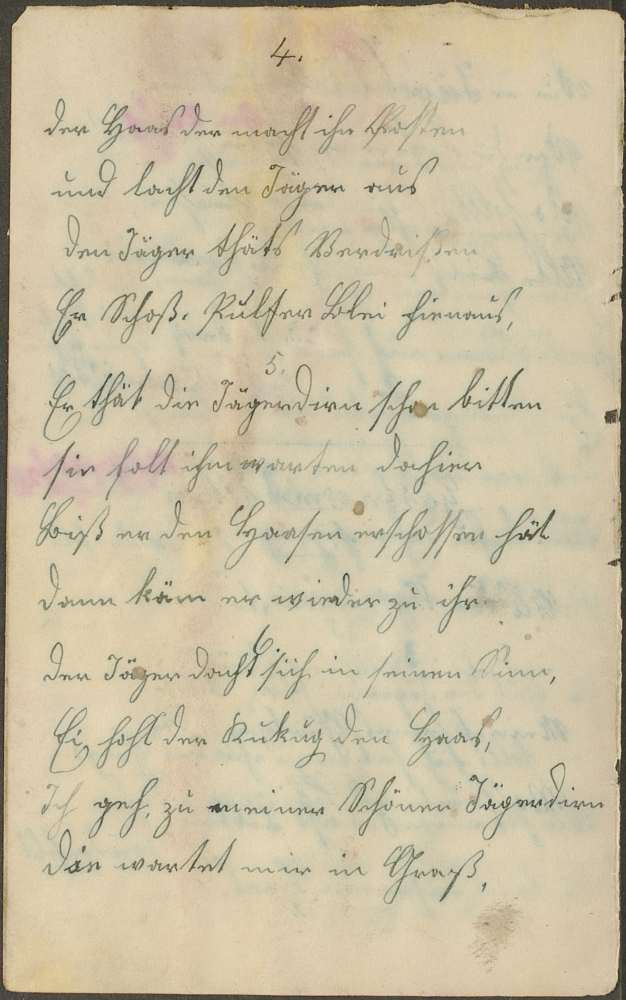 4.
der Haas der macht ihr Posten
und lacht den Jäger aus
den Jäger thäts Verdrißen
Er Schoß. Pulfer Blei hienaus,
5.
Er thät die Jägerdirn schon bitten
sie solt ihm warten dahier
Biß er den Haasen erschossen hät
dann käm er wieder zu ihr
6
der Jäger dacht sich in seinen Sinn,
Ei hohl der Kukug den Haas,
Ich geh, zu meiner Schönen Jägerdirn
die wartet mir in Graß,